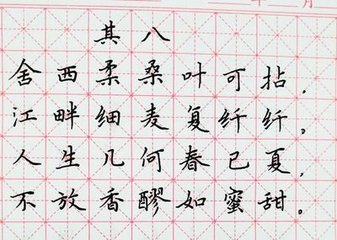 其八
舍西柔桑叶可拈，
江畔细麦复纤纤。
人生几何春已夏，
不放香醪如蜜甜。